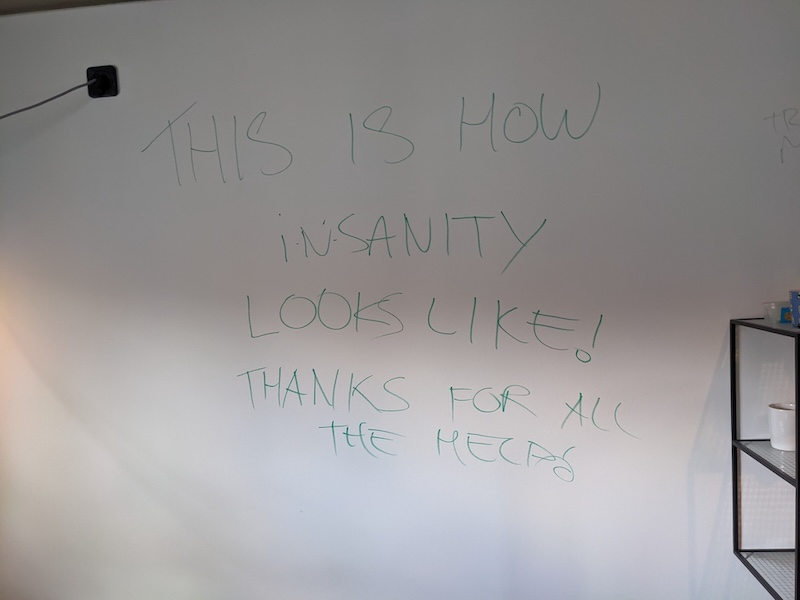 THIS IS HOW
i·N·SANITY
LOOKS LIKE!
THANKS FOR ALL
THE
TR